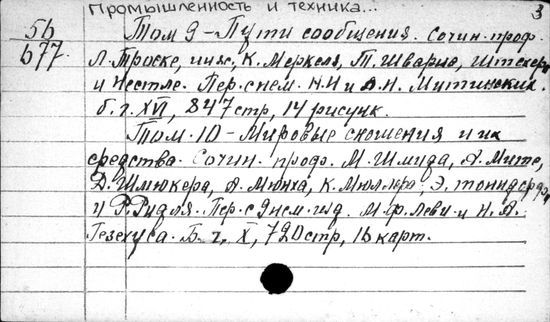 Промышленность и техника... 3
56
677.
Том 9 - Пути сообщения. Сочин. проф.
Л. Троске, инж. К. Меркеля, Т. Шварце,
и Нестле. Пер. с нем. Н.Н и В.Н. Митинских.
б.г. XVI, 847 стр, 14 рисунк.
Том. 10 - Мировые сношения и их
средства. Сочин. проф. М. Шмида, А. Мите,
Д. Шмюкера, А. Мюнха, К. Мюллера, Э.
и Р. Ридля. Пер. с 9 нем. изд. М.Ф. Леви и Н.А.
Гезехуса. Б. г. X, 720 стр, 16 карт.